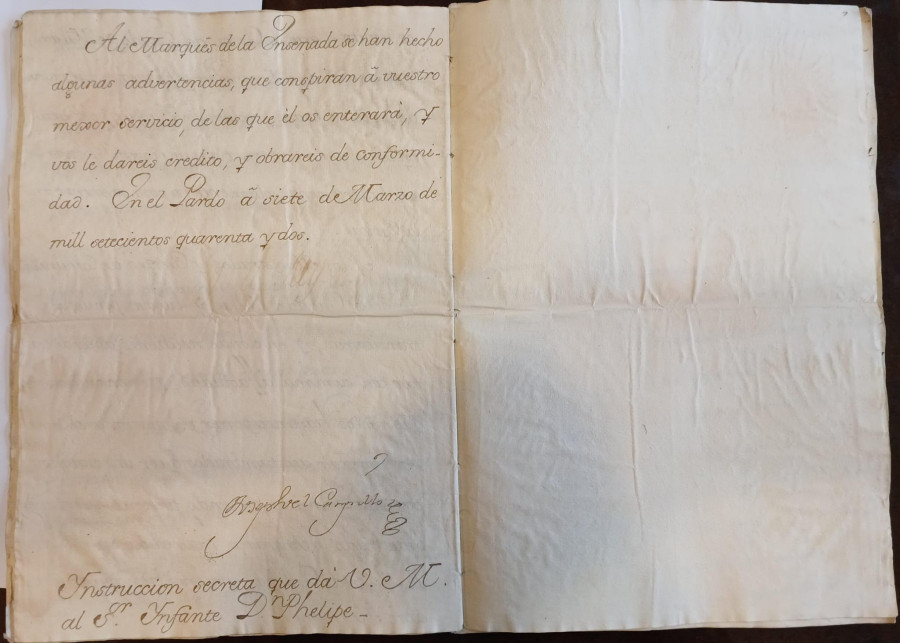 Al Marquès de la Ensenada se han hecho
algunas advertencias, que conspiran â vuestro
mexor servicio, de las que èl os enterarà, y
vos le dareis credito, y obrareis de conformi-
dad. En el Pardo â siete de Marzo de
mill setecientos quarenta y dos.
Instruccion secreta que dà V. M.
al S.r Infante D.n Phelipe_